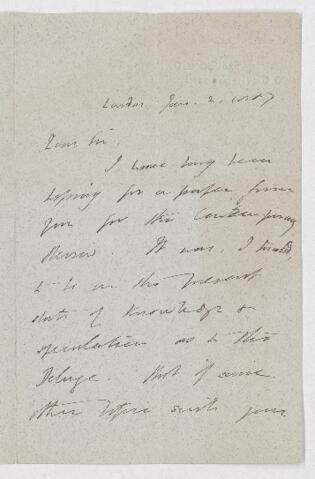 London Jan. 2, 1887
Dear Sir,
I have long been
hoping for a paper from
you for the Contemporary
Review. It was, I think,
to be on the present
state of knowledge &
speculation as to the
Deluge. But if some
other topic suits you